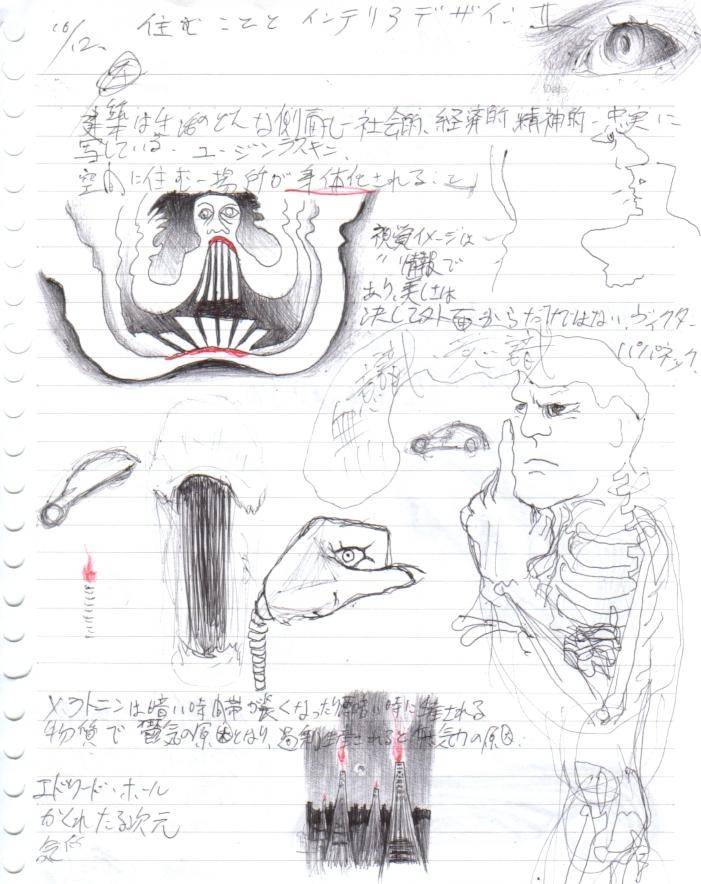 10/12.
住むこととインテリアデザインⅡ
Date
建築は生活のどんな側面も-社会的、経済的、精神的-忠実に
写している. ユージンラスキン、
空間に住む-場所が身体化されること
視覚イメージは
〃 情報で
あり、美しさは
決して外面からだけではない. ヴィクター
パパネック.
意識
無意識
メラトニンは暗い時間帯が長くなったり 暗い時に産生される
物質で 鬱気の原因となり、過剰生産されると無気力の原因.
エドワード・ホール
かくれたる次元